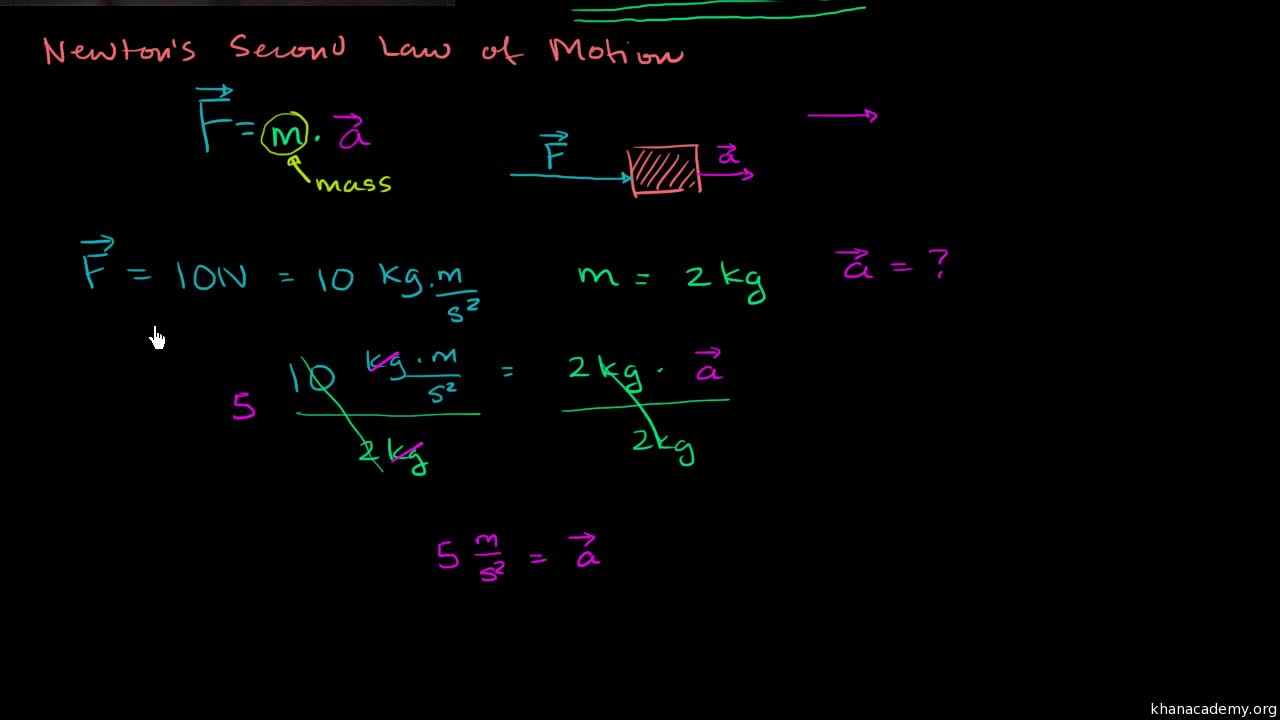 Newton's Second Law of Motion
F = m · a
mass
F
a
F = 10N = 10 kg · m/s² m = 2kg a = ?
10 kg · m/s² = 2kg · a
5
2kg 2kg
5 m/s² = a
khanacademy.org